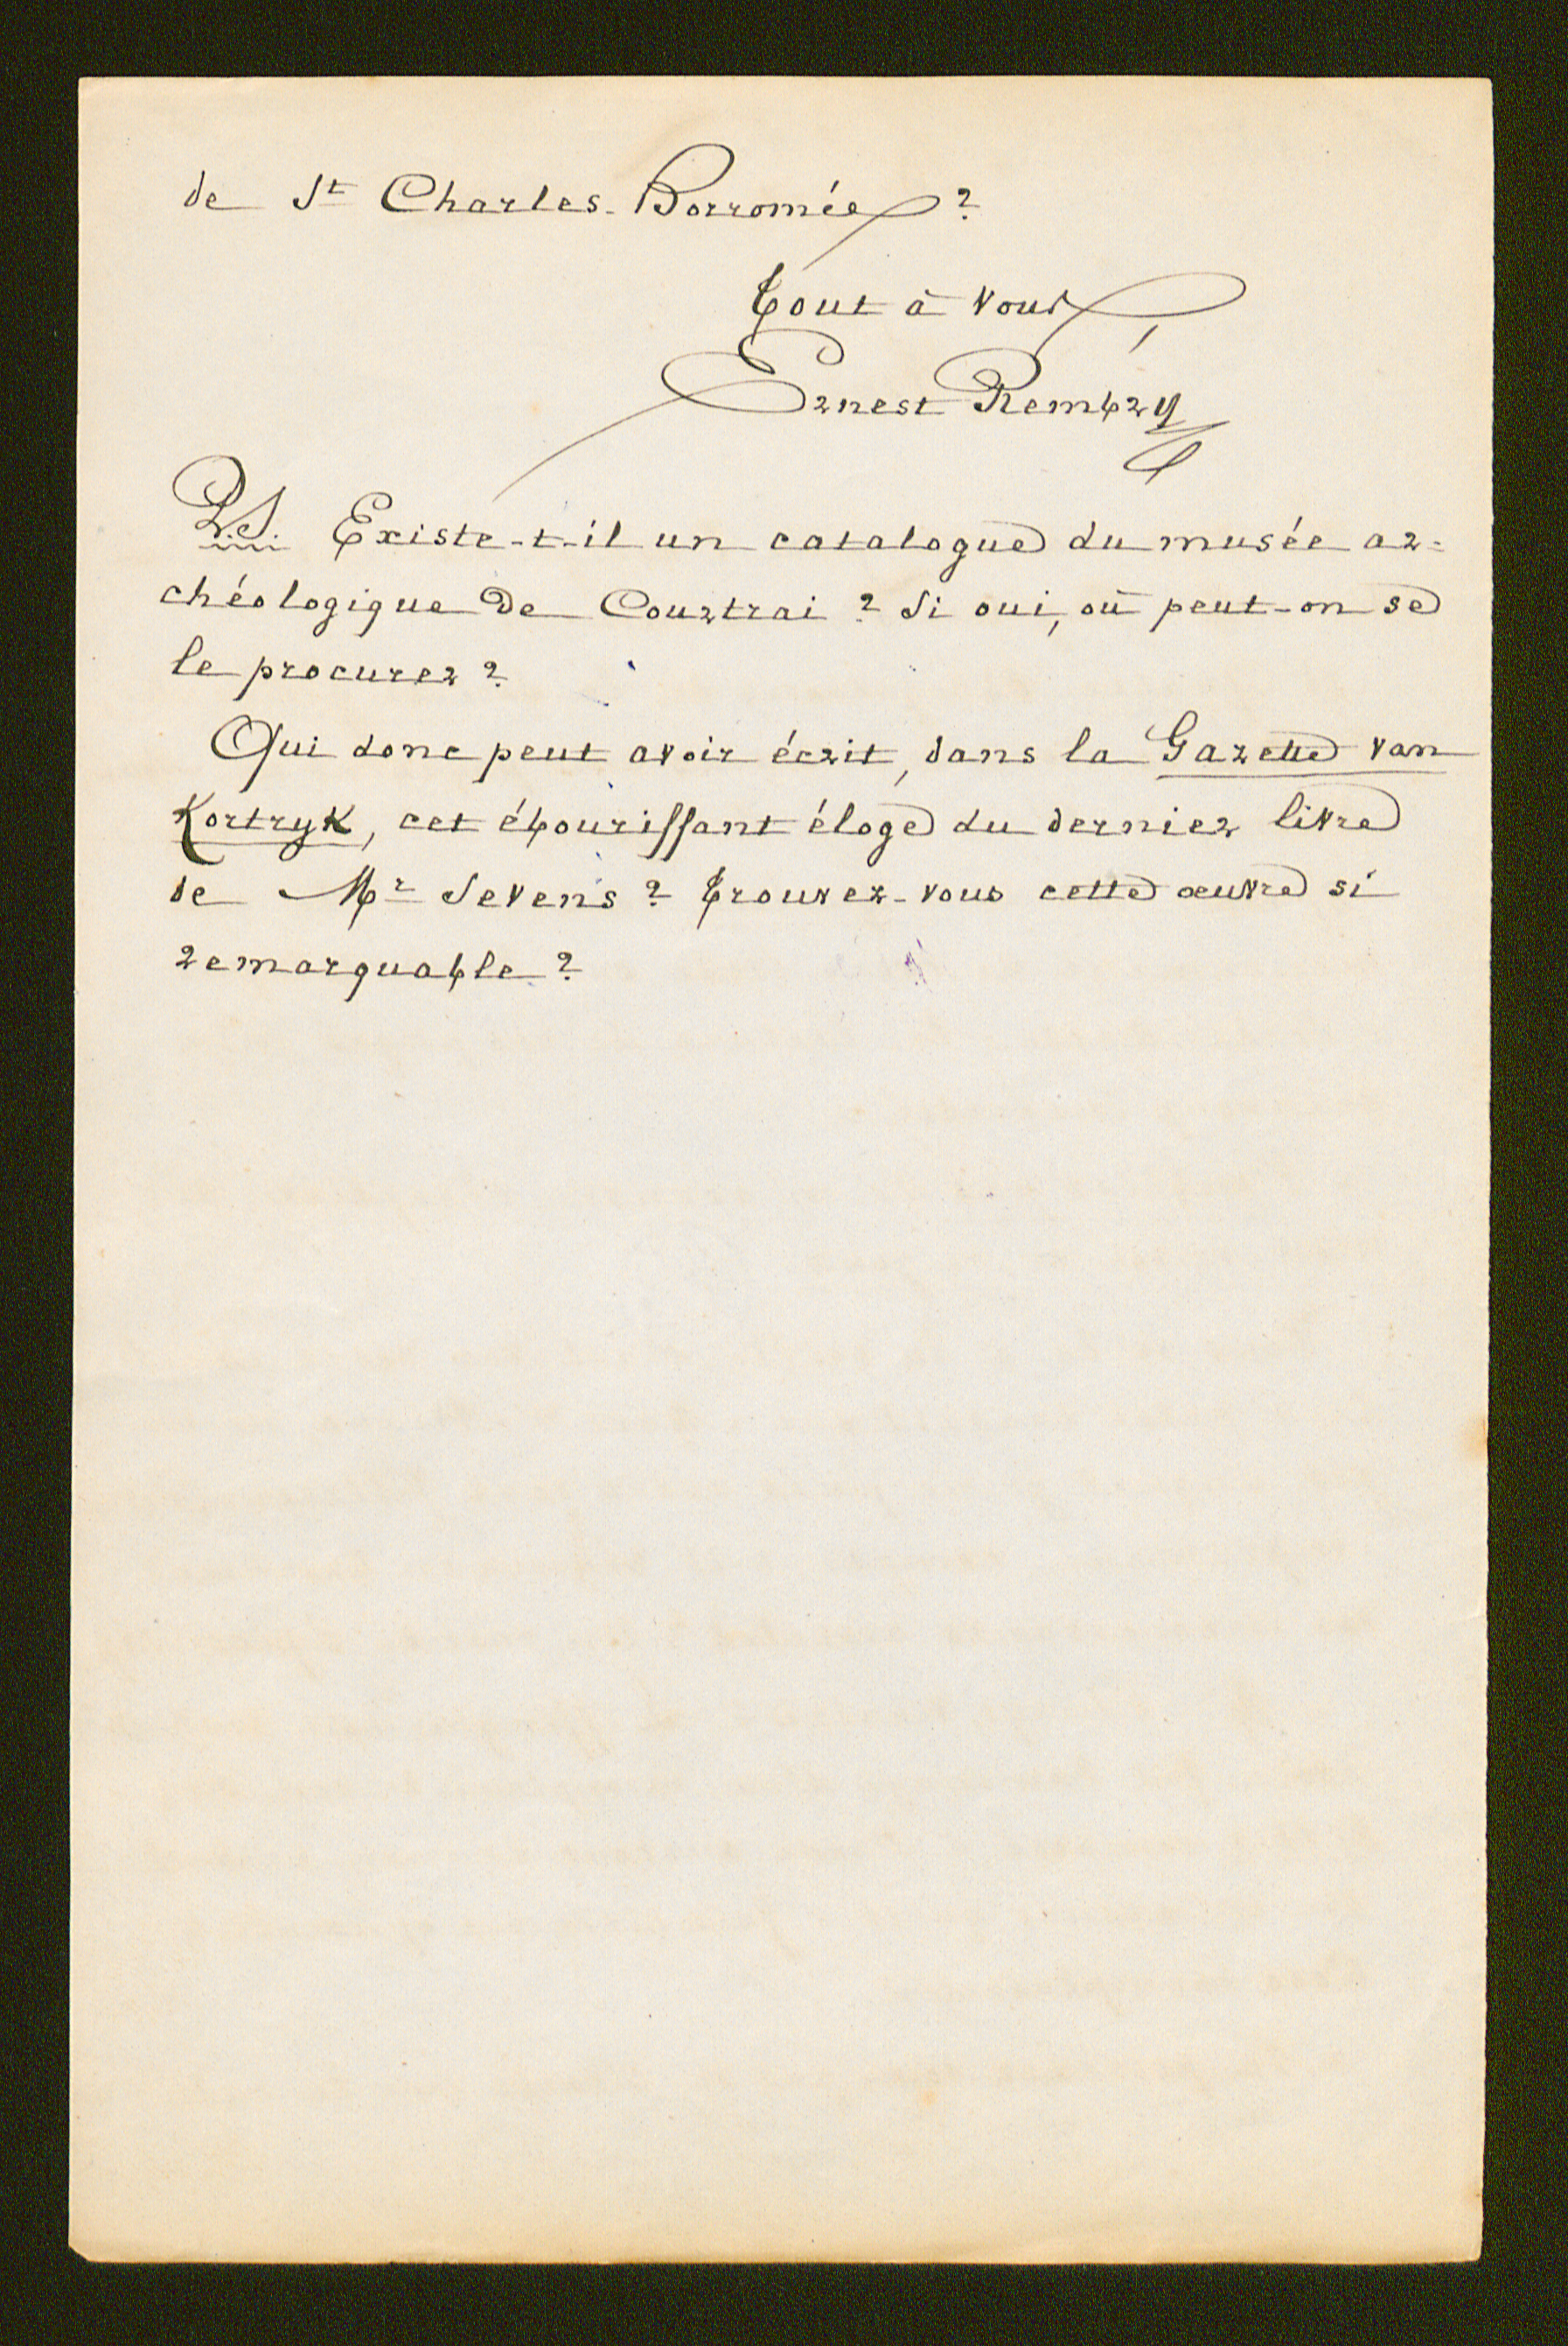 de St Charles-Borromée ?
Tout à vous,
Ernest Rembry
P.S. Existe-t-il un catalogue du musée ar-
chéologique de Courtrai ? Si oui, où peut-on se
le procurer ?
Qui donc peut avoir écrit, dans la Gazette van
Kortryk, cet ébourissant éloge du dernier livre
de Mr Sevens ? Trouvez-vous cette œuvre si
remarquable ?